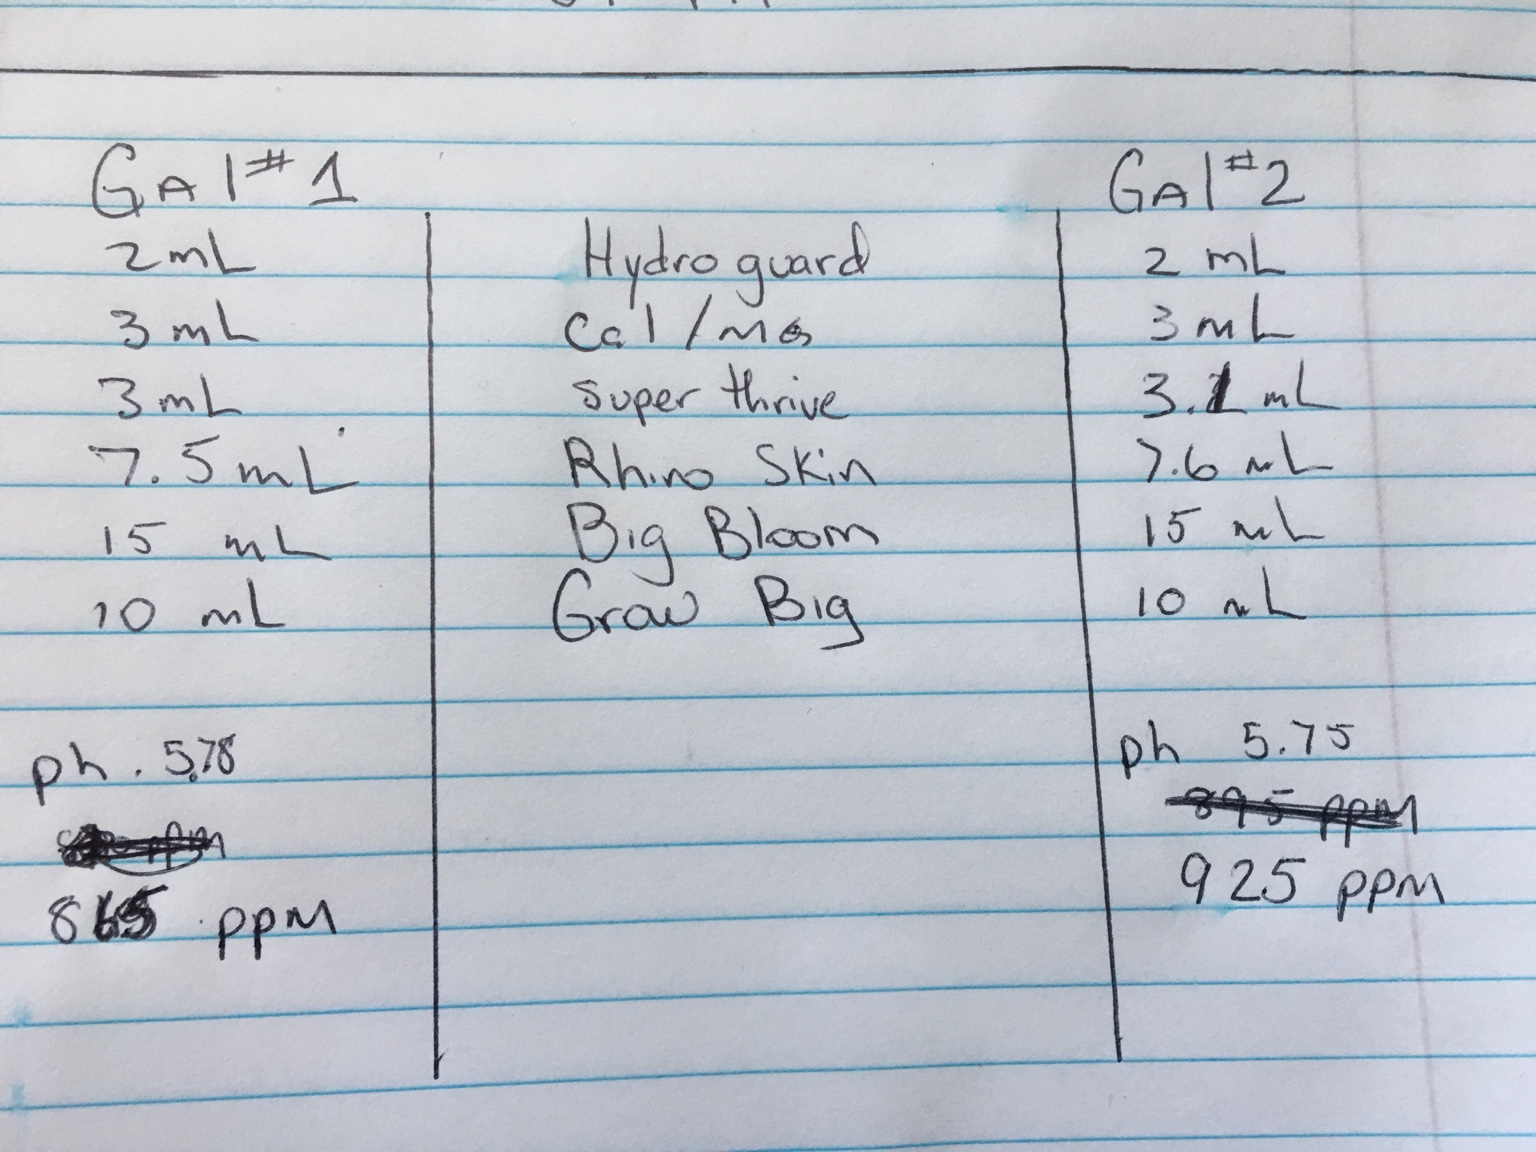 GAl #1 GAl #2
2 mL Hydro guard 2 mL
3 mL Cal/MG 3 mL
3 mL super thrive 3.1 mL
7.5 mL Rhino Skin 7.6 mL
15 mL Big Bloom 15 mL
10 mL Grow Big 10 mL
ph. 5.78 ph 5.75
ppm 895 ppm
865 ppm 925 ppm